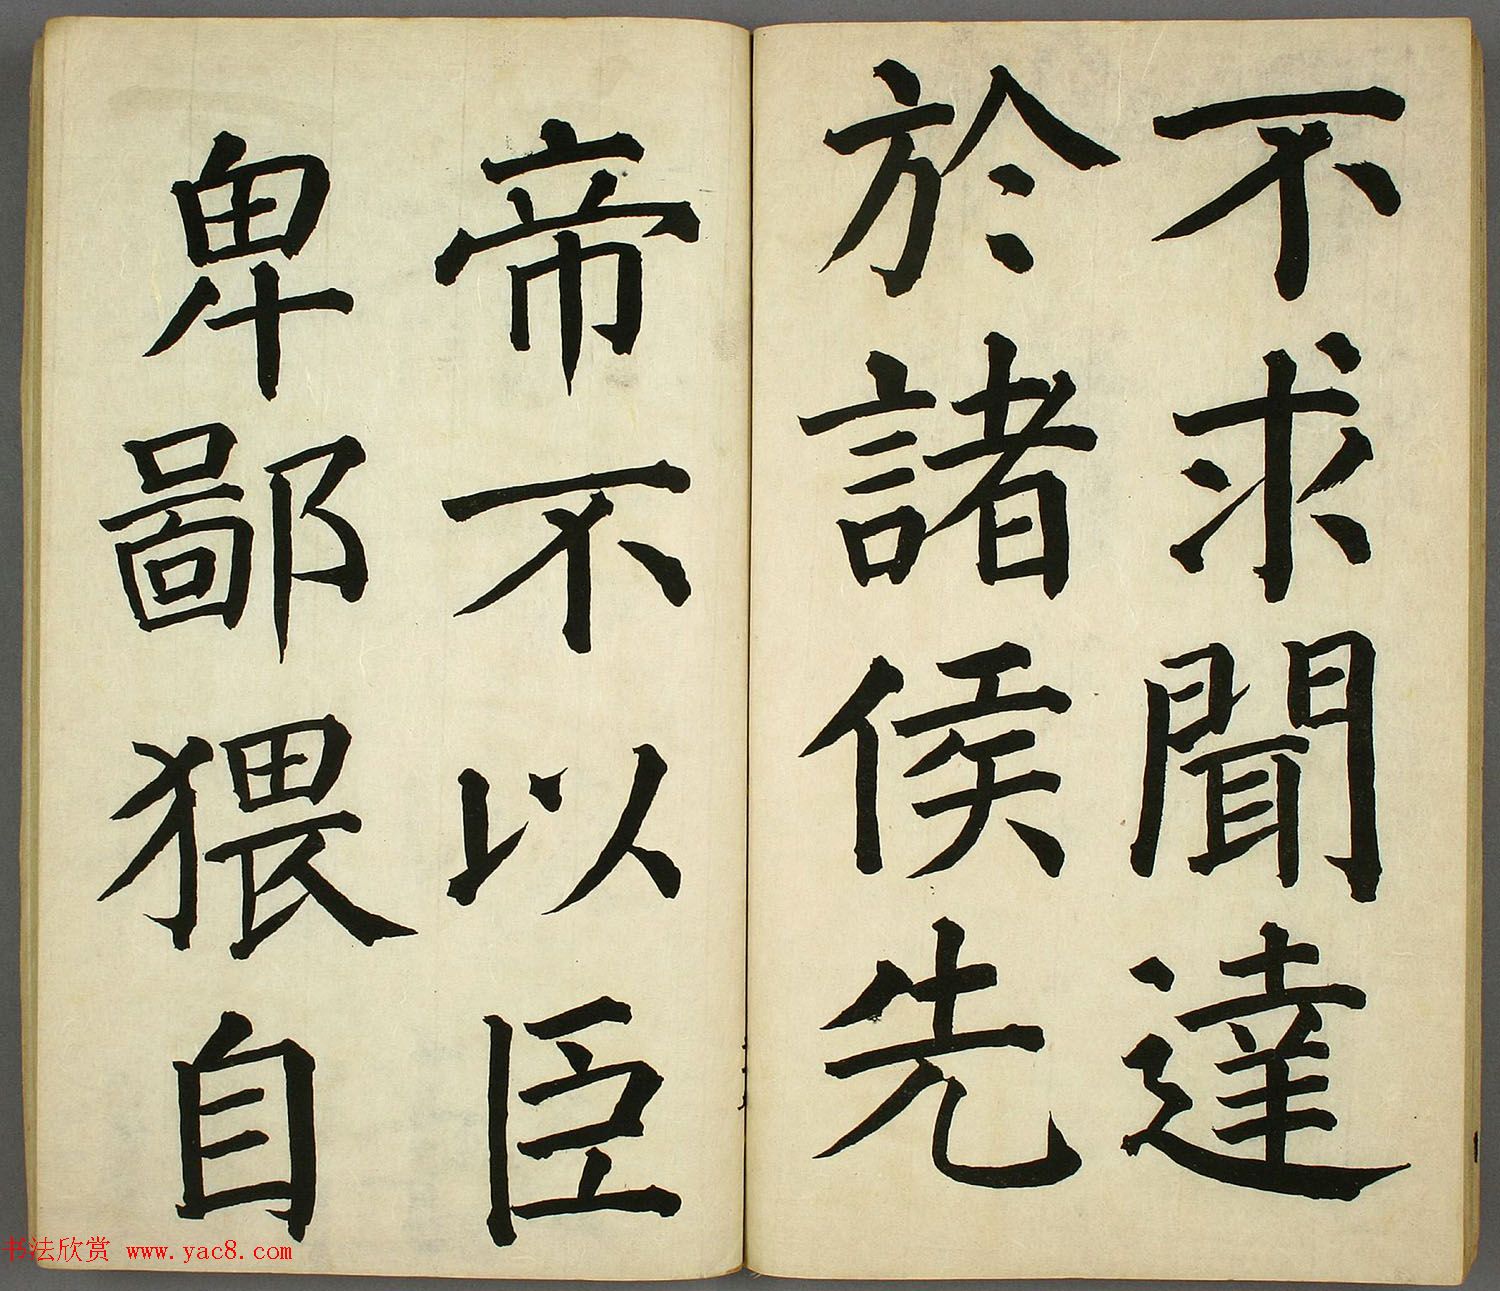 不求聞達
於諸侯先
帝不以臣
卑鄙猥自
书法欣赏 www.yac8.com